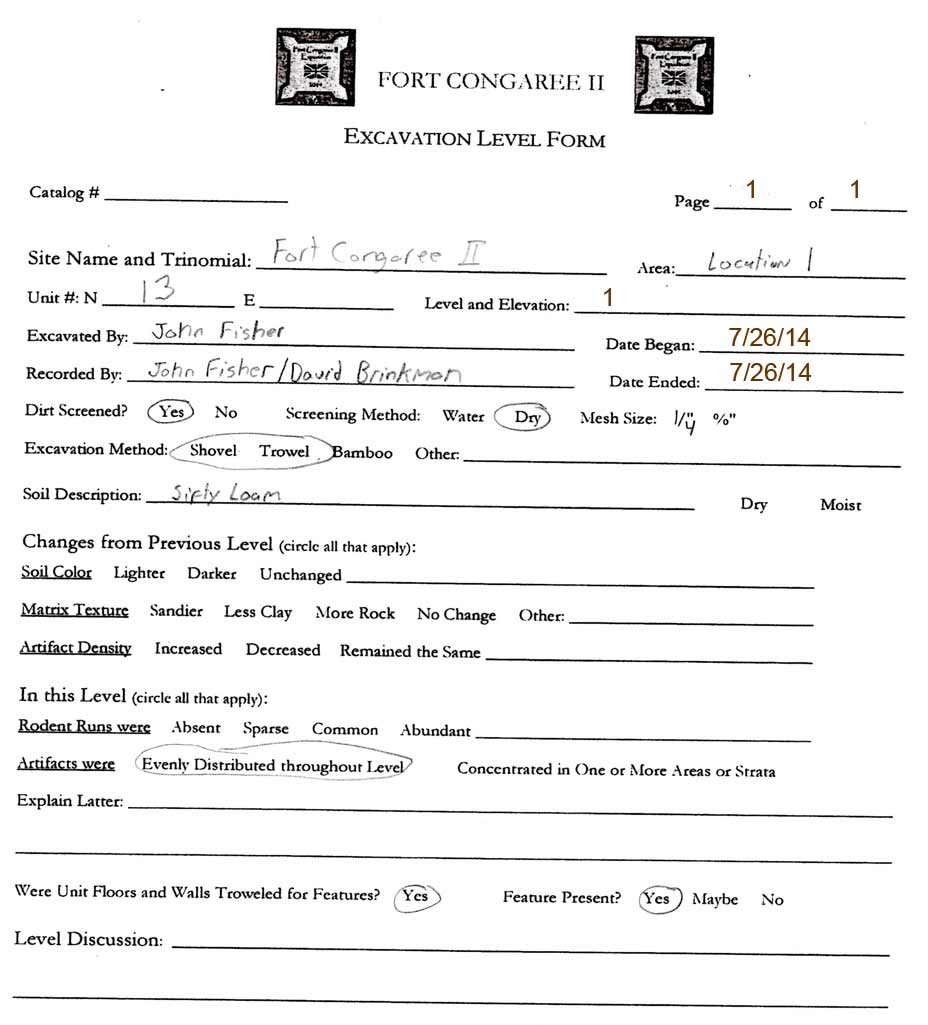 Fort Congaree II
Expedition
2014
FORT CONGAREE II
Fort Congaree II
Expedition
2014
EXCAVATION LEVEL FORM
Catalog #
Page 1 of 1
Site Name and Trinomial: Fort Congaree II Area: Location 1
Unit #: N 13 E Level and Elevation: 1
Excavated By: John Fisher Date Began: 7/26/14
Recorded By: John Fisher/David Brinkman Date Ended: 7/26/14
Dirt Screened? Yes No Screening Method: Water Dry Mesh Size: 1/4" %"
Excavation Method: Shovel Trowel Bamboo Other:
Soil Description: Silty Loam Dry Moist
Changes from Previous Level (circle all that apply):
Soil Color Lighter Darker Unchanged
Matrix Texture Sandier Less Clay More Rock No Change Other:
Artifact Density Increased Decreased Remained the Same
In this Level (circle all that apply):
Rodent Runs were Absent Sparse Common Abundant
Artifacts were Evenly Distributed throughout Level Concentrated in One or More Areas or Strata
Explain Latter:
Were Unit Floors and Walls Troweled for Features? Yes Feature Present? Yes Maybe No
Level Discussion: